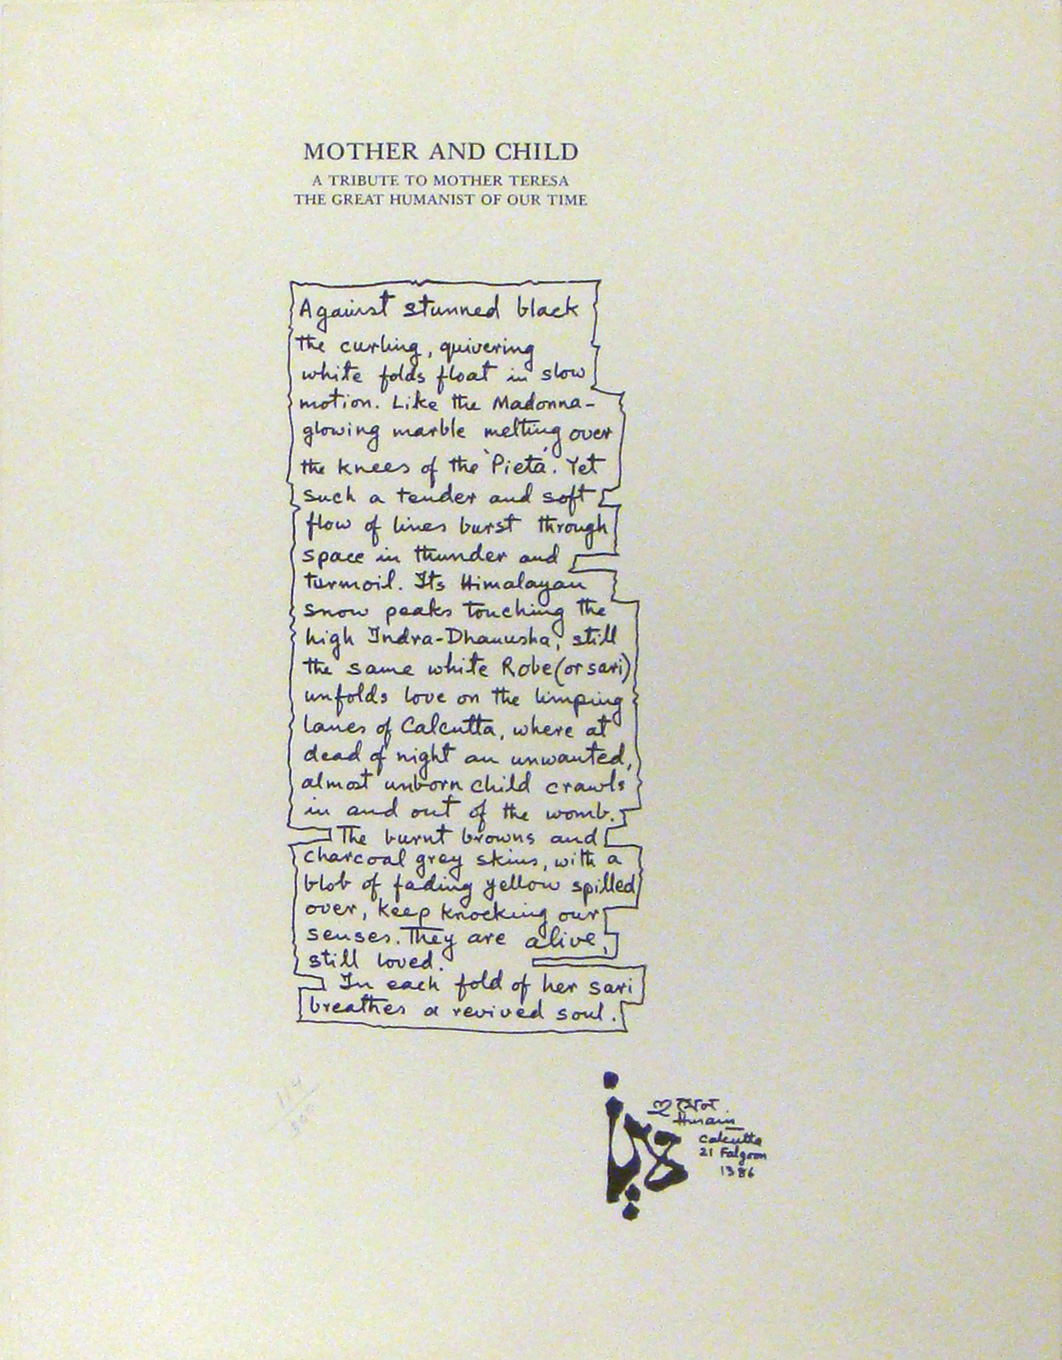 MOTHER AND CHILD
A TRIBUTE TO MOTHER TERESA
THE GREAT HUMANIST OF OUR TIME
Against stunned black
the curling, quivering
white folds float in slow
motion. Like the Madonna-
glowing marble melting over
the knees of the 'Pieta'. Yet
such a tender and soft
flow of lines burst through
space in thunder and
turmoil. Its Himalayan
snow peaks touching the
high Indra-Dhanusha, still
the same white Robe (or sari)
unfolds love on the limping
lanes of Calcutta, where at
dead of night an unwanted,
almost unborn child crawls
in and out of the womb.
The burnt browns and
charcoal grey skins, with a
blob of fading yellow spilled
over, keep knocking our
senses. They are alive,
still loved.
In each fold of her sari
breathes a revived soul.
Husain
Calcutta
21 Falgoon
1386